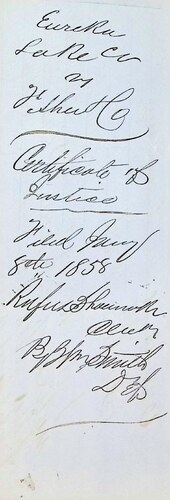 Eureka
Lake Co
vs
Fisher & Co
Certificate of
Justice
Filed Jany
8th 1858
Rufus Shoemaker
Clerk
By Wm Smith
Dep